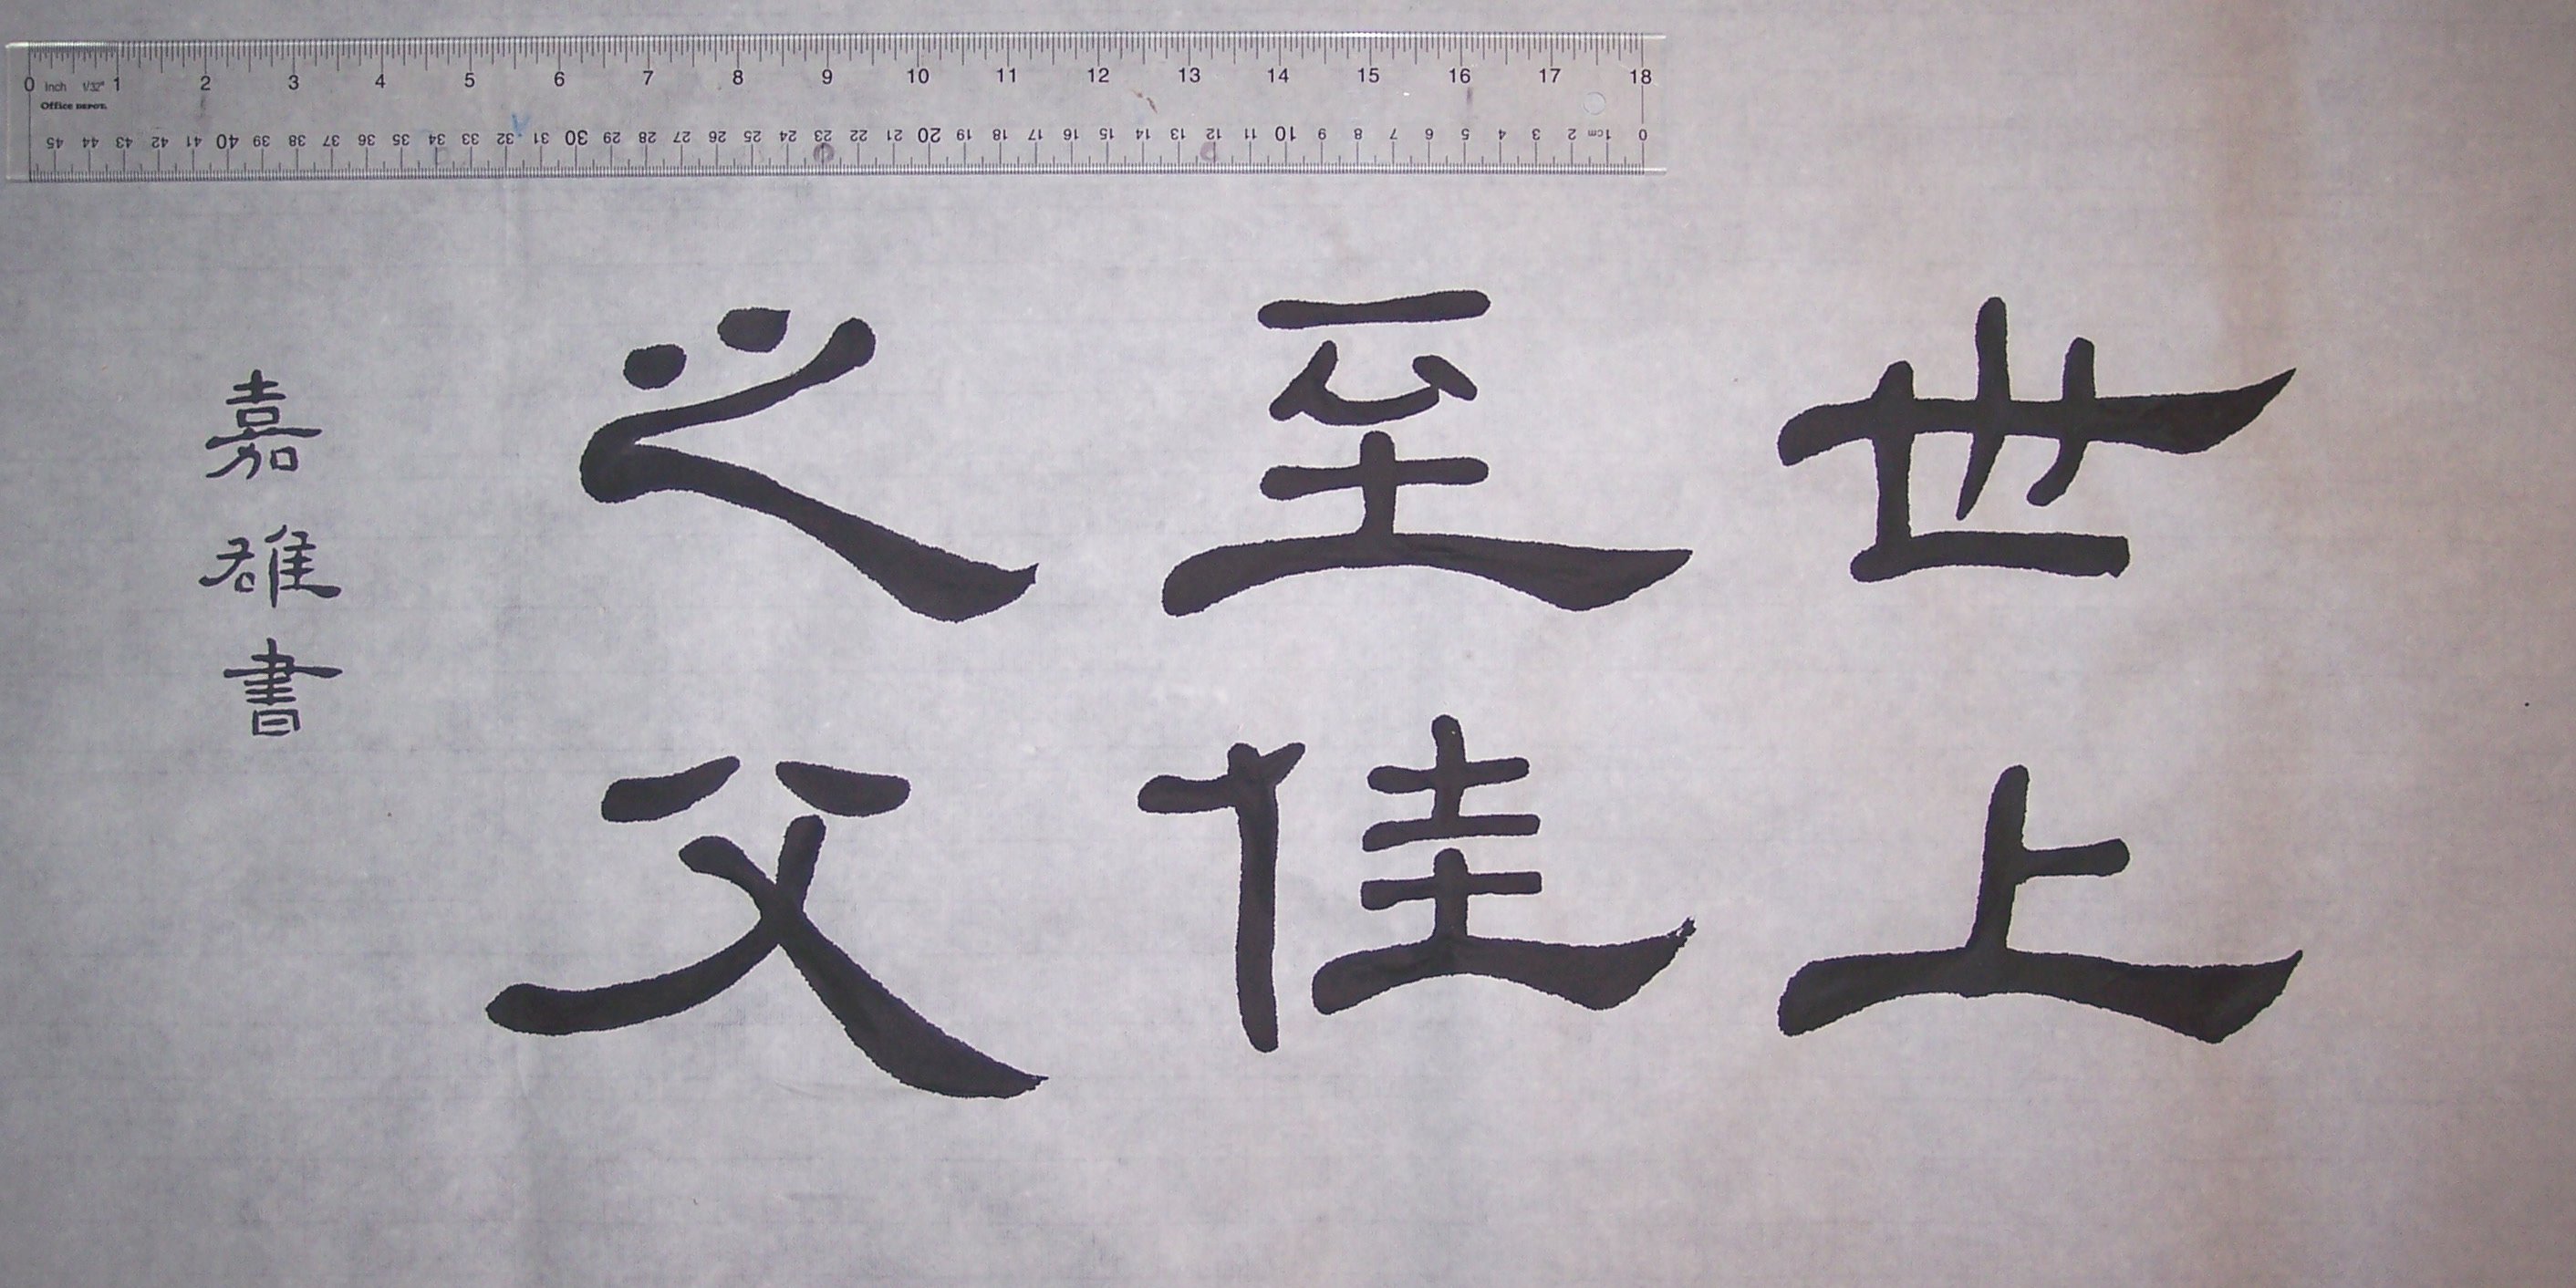 世上
至佳
之父
嘉雄書
0 Inch 1/32" 1 2 3 4 5 6 7 8 9 10 11 12 13 14 15 16 17 18
Office DEPOT.
0 1cm 2 3 4 5 6 7 8 9 10 11 12 13 14 15 16 17 18 19 20 21 22 23 24 25 26 27 28 29 30 31 32 33 34 35 36 37 38 39 40 41 42 43 44 45